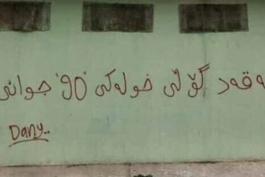 ەقەد گۆڵی خولەکی '90' جوانی
Dany..